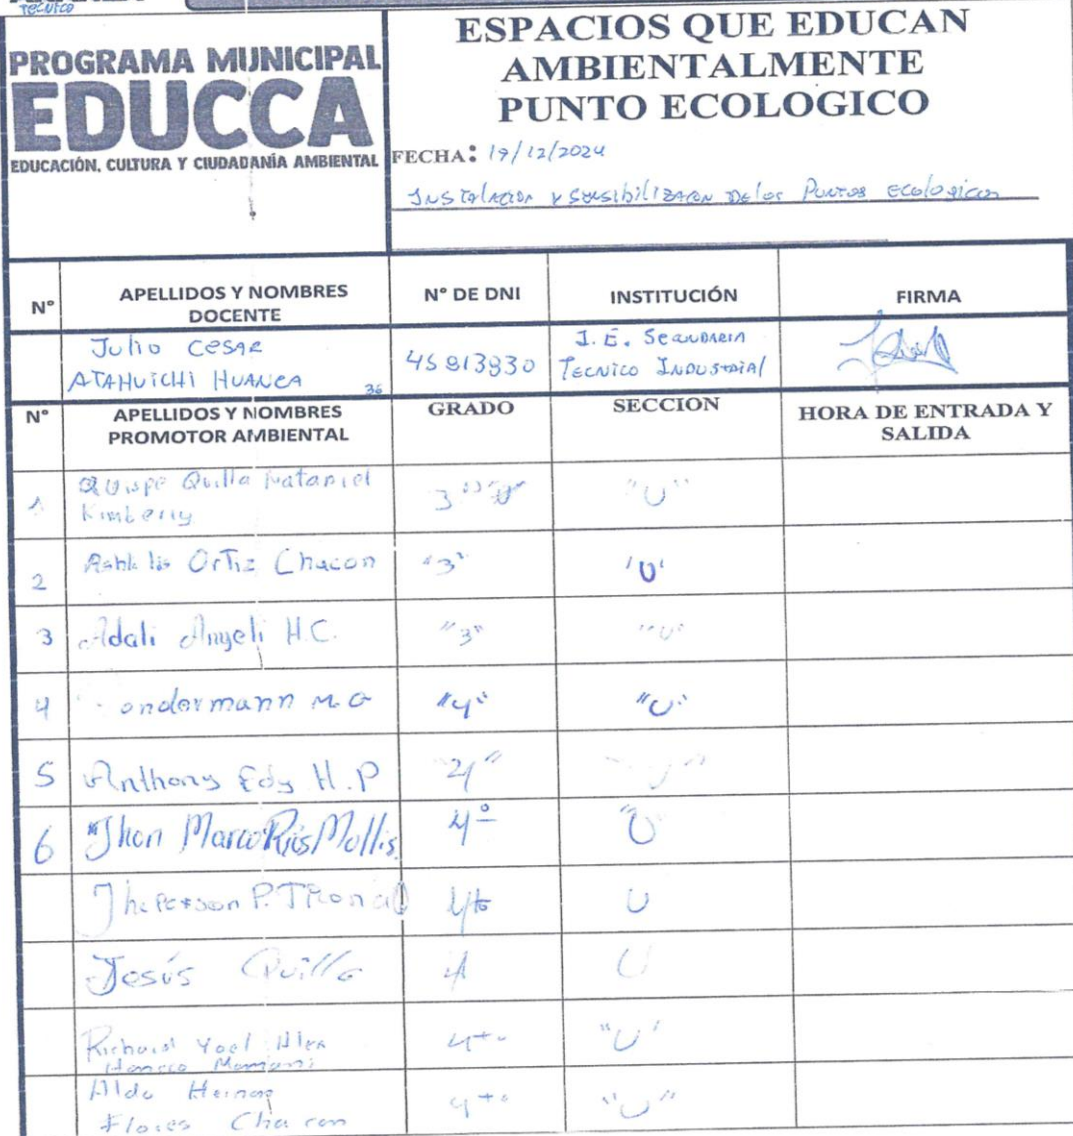 TECNICO
PROGRAMA MUNICIPAL
EDUCCA
EDUCACIÓN, CULTURA Y CIUDADANÍA AMBIENTAL
ESPACIOS QUE EDUCAN
AMBIENTALMENTE
PUNTO ECOLOGICO
FECHA: 19/12/2024
Instalacion y Sensibilizacion De los Puntos Ecologicos
N° APELLIDOS Y NOMBRES DOCENTE N° DE DNI INSTITUCIÓN FIRMA
Julio Cesar
ATAHUICHI HUANCA 36 45813830 I.E. Secundaria
Tecnico Industrial
N° APELLIDOS Y NOMBRES PROMOTOR AMBIENTAL GRADO SECCION HORA DE ENTRADA Y SALIDA
1 Quispe Quilla Nataniel
Kimberly 3 "U"
2 Ortiz Chacon "3" 'U'
3 Adali Angeli H.C. "3" "U"
4 M.G "4" "U"
5 Anthony Edy H.P 4"
6 "Jhon Marco 4° "U
4to U
Jesús Quilla 4 U
Richard Yoel
Mamani 4to "U'
Aldo Hernan
Flores Chacon 4to "U"